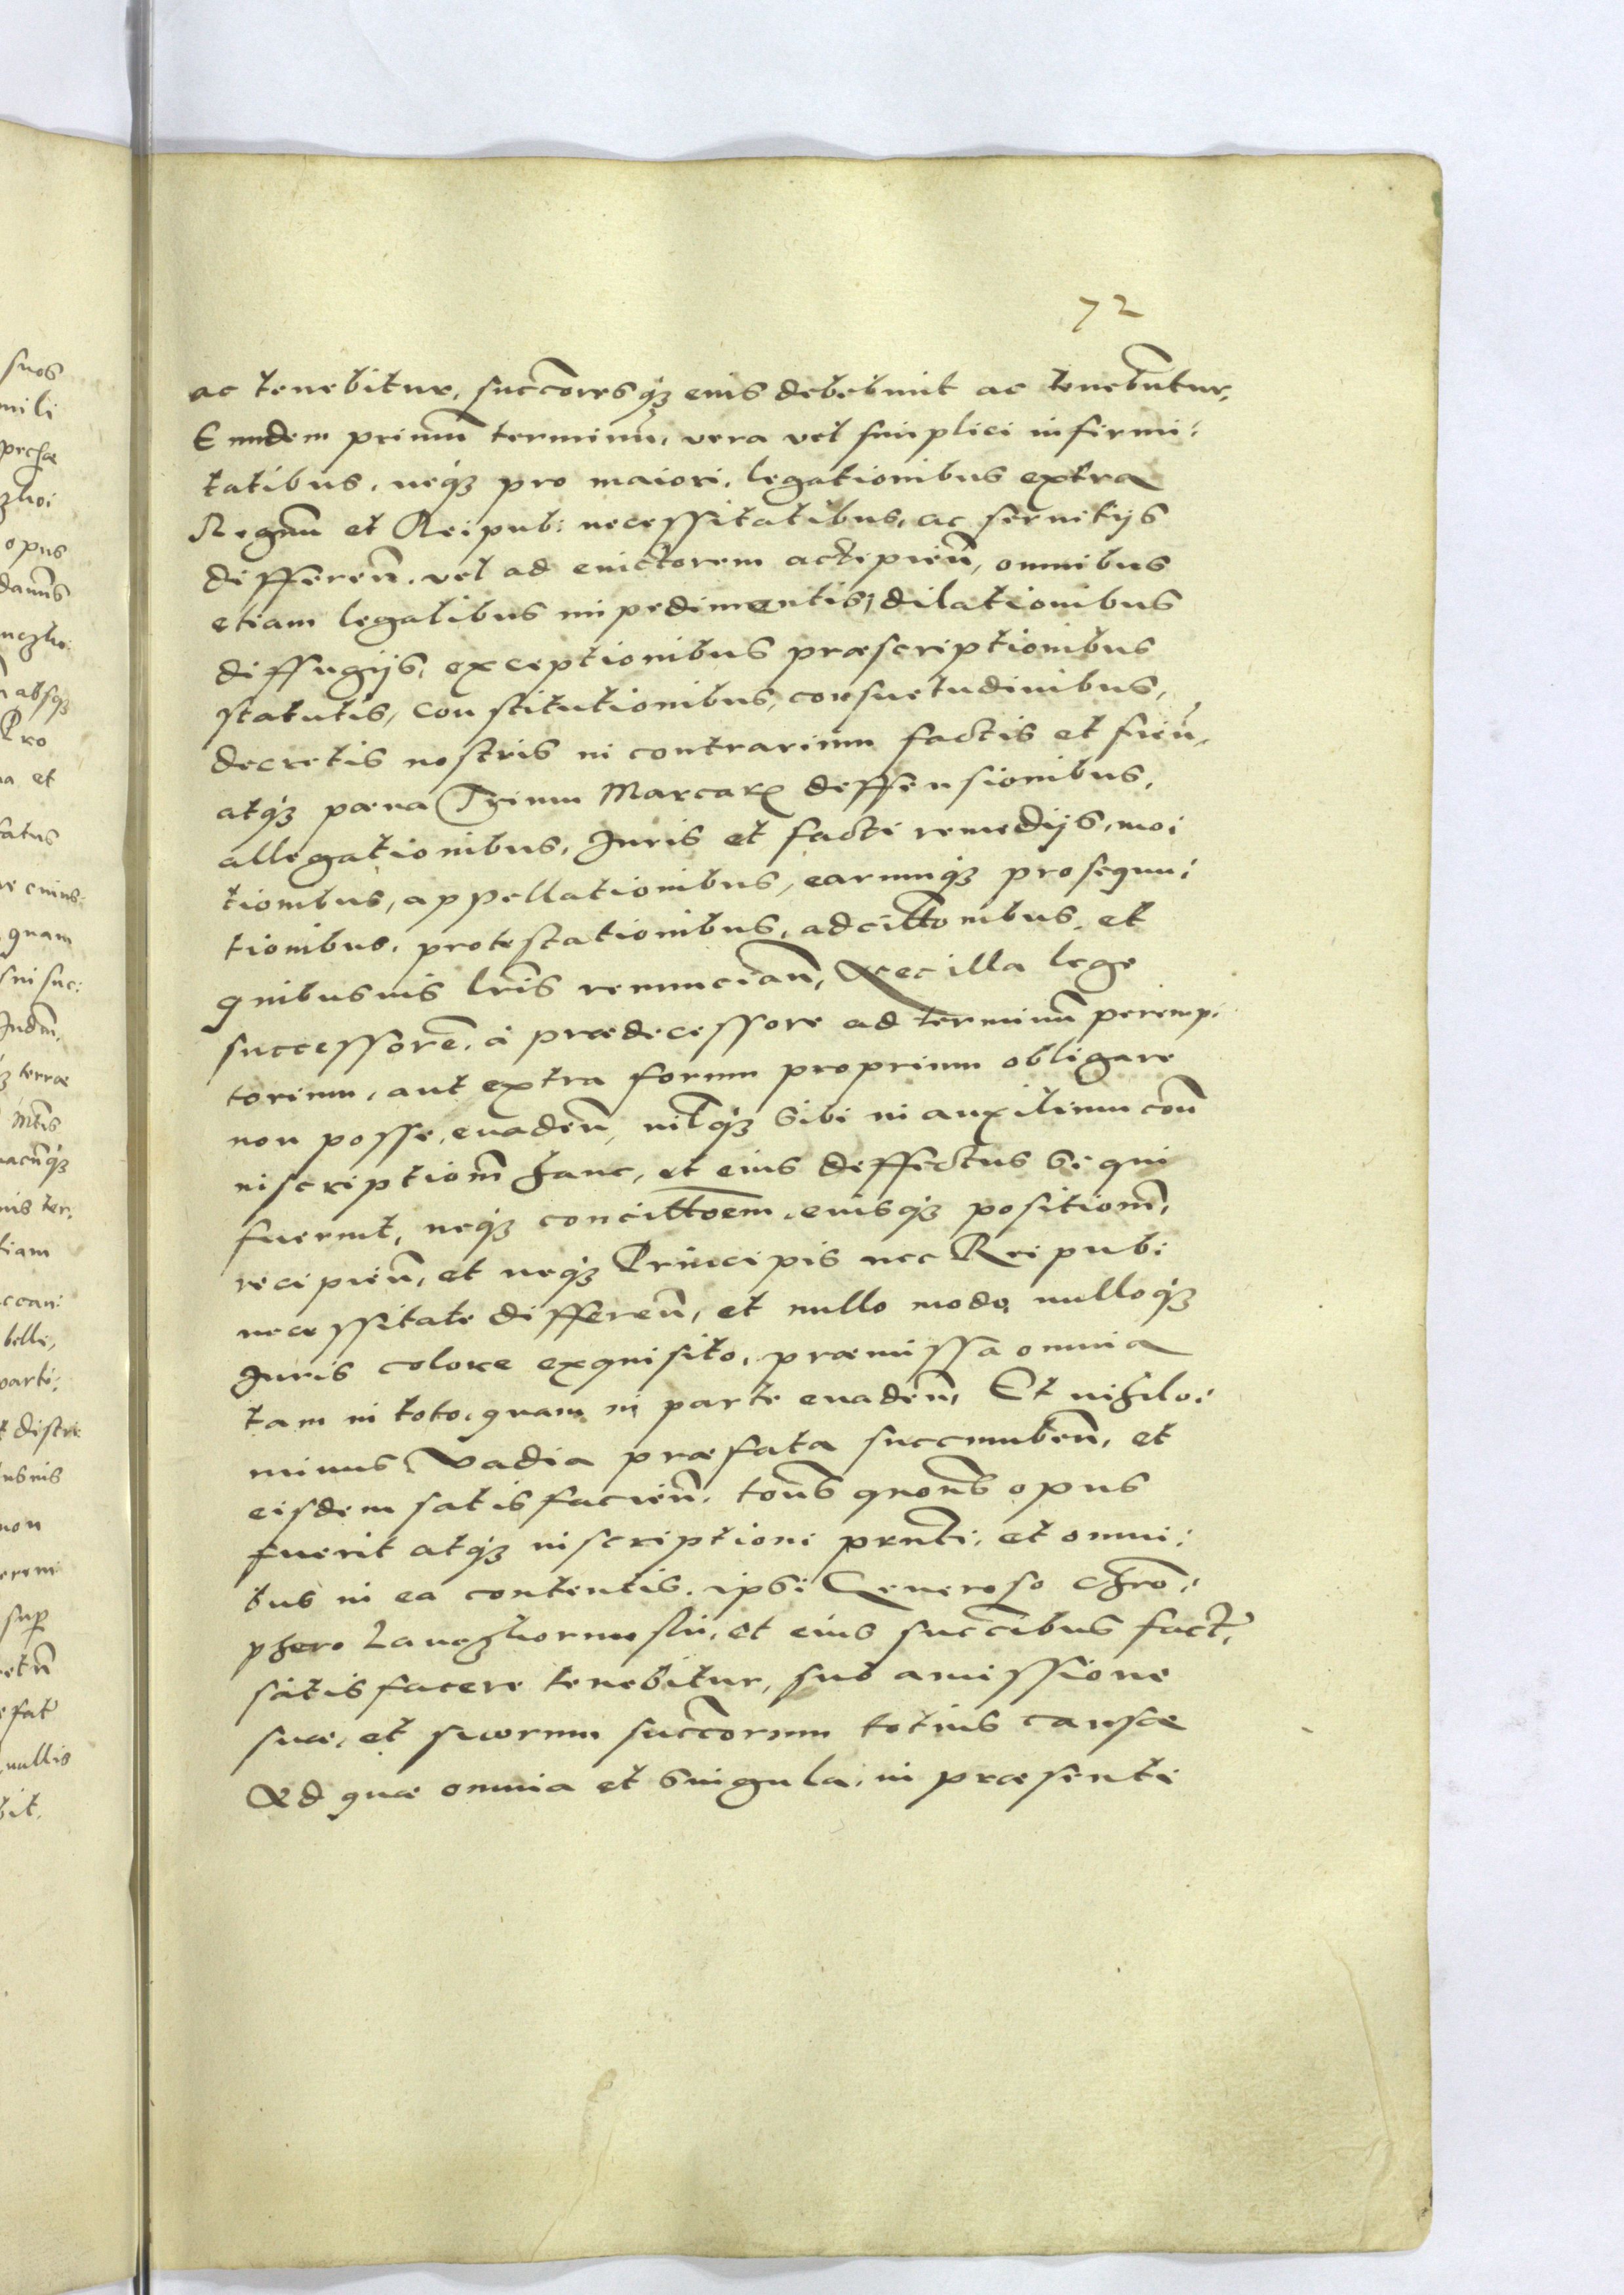 72
ac tenebitur, succōresqȝ eius debebunt ac tenebūntur,
Eundem primū terminū, vera vel simplici infirmi:
tatibus, neqȝ pro maiori, legationibus extra
Regnū et Reipub: necessitatibus, ac seruitijs
differeñ. vel ad euictorem accipieñ, omnibus
etiam legalibus impedimentis, dilationibus
diffugijs, exceptionibus præscriptionibus
statutis, constitutionibus, consuetudinibus,
decretis nostris in contrarium factis et fieñ,
atqȝ pœna Trium Marcarꝝ deffensionibus,
allegationibus, Juris et facti remedijs, mo:
tionibus, appellationibus, earumqȝ prosequu:
tionibus, protestationibus, adcitt̄onibus, et
quibusuis lr̄is renuncian̄, Nec illa lege
successorē, à prædecessore ad terminū peremp:
torium, aut extra forum proprium obligare
non posse, euadeñ, nilqȝ sibi in auxilium coñ
inscriptionē hanc, et eius deffectus si qui
fuerint, neqȝ concitt̄oem, eiusqȝ positionē,
recipieñ, et neqȝ Principis nec Reipub:
necessitate differeñ, et nullo modo, nulloqȝ
Juris colore exquisito, præmissa omnia
tam in toto, quam in parte euadeñ, Et nihilo:
minus Vadia præfata succumbeñ, et
eisdem satisfacieñ, tōns quōns opus
fuerit atqȝ inscriptioni prn̄ti, et omni:
bus in ea contentis, ipsi Generoso Chrō:
phero Lanczhornski, et eius succībus fact̄,
satisfacere tenebitur, sub amissione
suæ, et suorum succōrum totius causæ
Ad quæ omnia et singula, in præsenti
suos
opus
absqȝ
Pro
et
quam
terræ
belli,
non
nullis